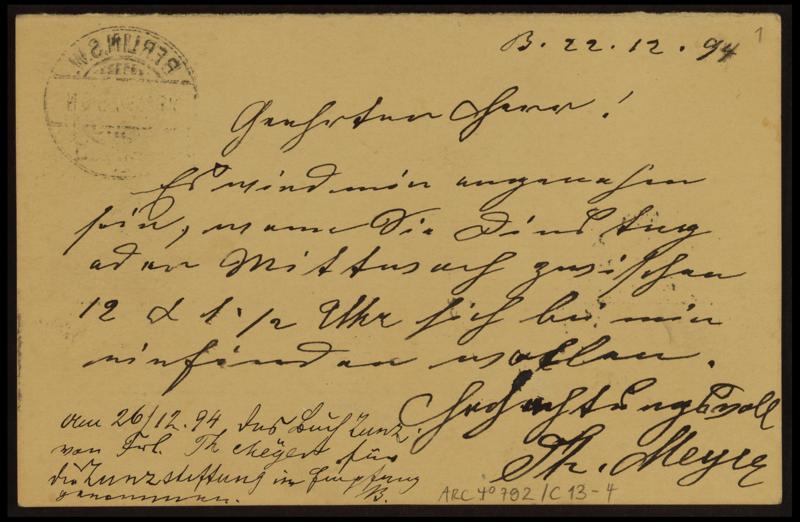 B. 22.12.94
1
Geehrter Herr!
Es wird mir angenehm
sein, wenn Sie Dienstag
oder Mittwoch zwischen
12 & 1 1/2 Uhr sich bei mir
einfinden wollen.
Hochachtungsvoll
Th. Meyer
am 26/12.94 das Buch Zunz
von Frl. Th Meyer für
die Zunzstiftung in Empfang
genommen. B.
ARC 4° 792/C 13-4
BERLIN S.W.